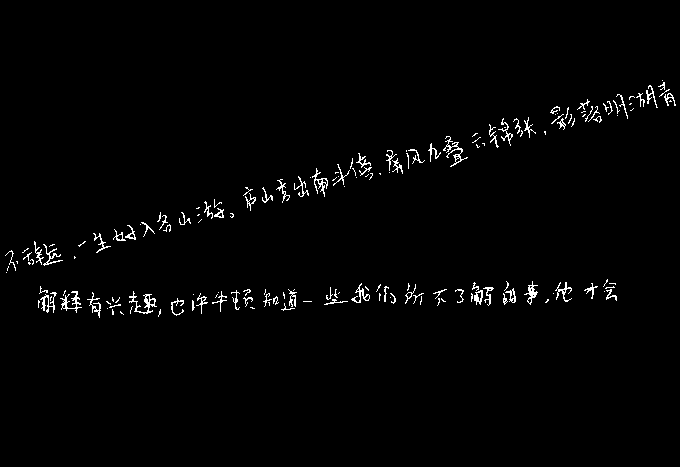 不辞远,一生好入名山游。庐山秀出南斗傍,屏风九叠云锦张,影落明湖青
解释有兴趣,也许牛顿知道一些我们所不了解的事,他才会